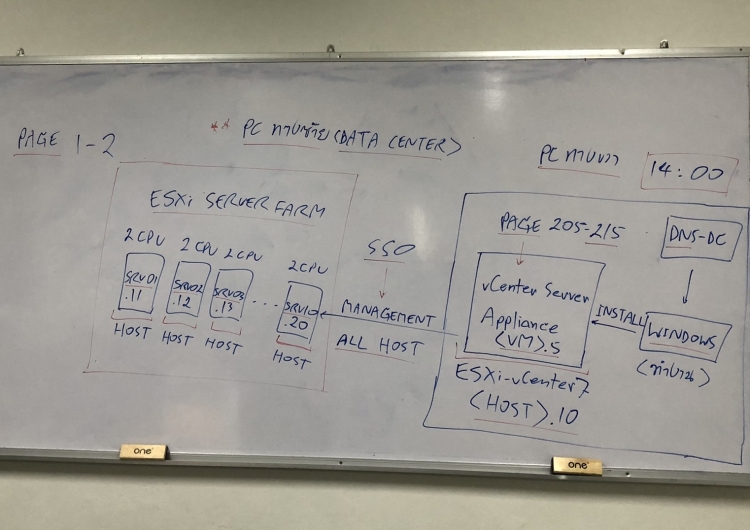 PAGE 1-2
** PC ทางซ้าย (DATA CENTER)
PC ทางขวา
14:00
ESXi SERVER FARM
2 CPU 2 CPU 2 CPU 2 CPU
SRV01 .11
SRV02 .12
SRV03 .13
...
SRV10 .20
HOST HOST HOST HOST
SSO
MANAGEMENT
ALL HOST
PAGE 205-215
vCenter Server
Appliance
(VM).5
ESXi-vCenter7
(HOST).10
INSTALL
DNS-DC
WINDOWS
one
one